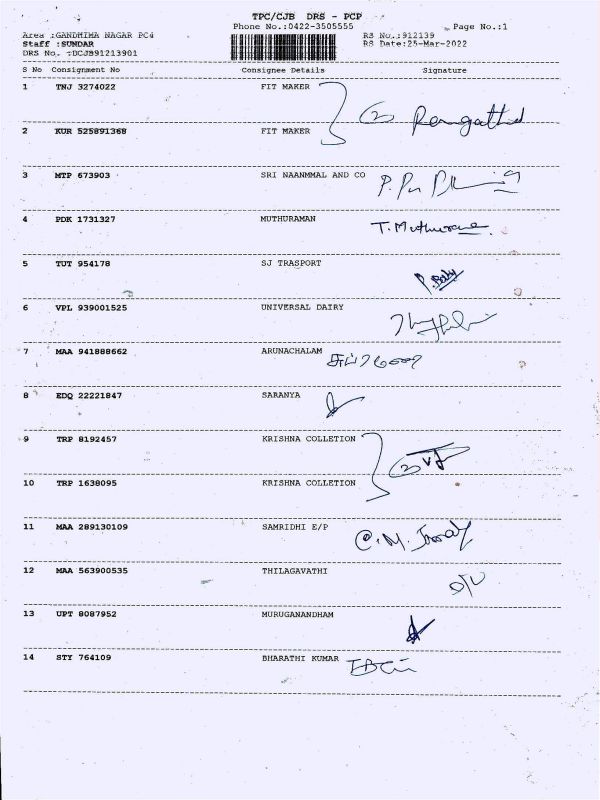 TPC/CJB DRS - PCP
Phone No.:0422-3505555
Page No.:1
Area :GANDHIMA NAGAR PC4
RS No.:912139
Staff :SUNDAR
RS Date:25-Mar-2022
DRS No. :DCJB91213901
S No Consignment No Consignee Details Signature
1 TNJ 3274022 FIT MAKER
2 KUR 525891368 FIT MAKER
3 MTP 673903 SRI NAANMMAL AND CO
4 PDK 1731327 MUTHURAMAN T. Muthurame
5 TUT 954178 SJ TRASPORT
6 VPL 939001525 UNIVERSAL DAIRY
7 MAA 941888662 ARUNACHALAM
8 EDQ 22221847 SARANYA
9 TRP 8192457 KRISHNA COLLETION
10 TRP 1638095 KRISHNA COLLETION
11 MAA 289130109 SAMRIDHI E/P
12 MAA 563900535 THILAGAVATHI
13 UPT 8087952 MURUGANANDHAM
14 STY 764109 BHARATHI KUMAR